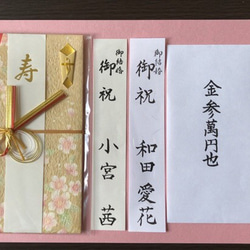 寿
御結婚
御祝
小宮茜
御結婚
御祝
和田愛花
金参萬円也